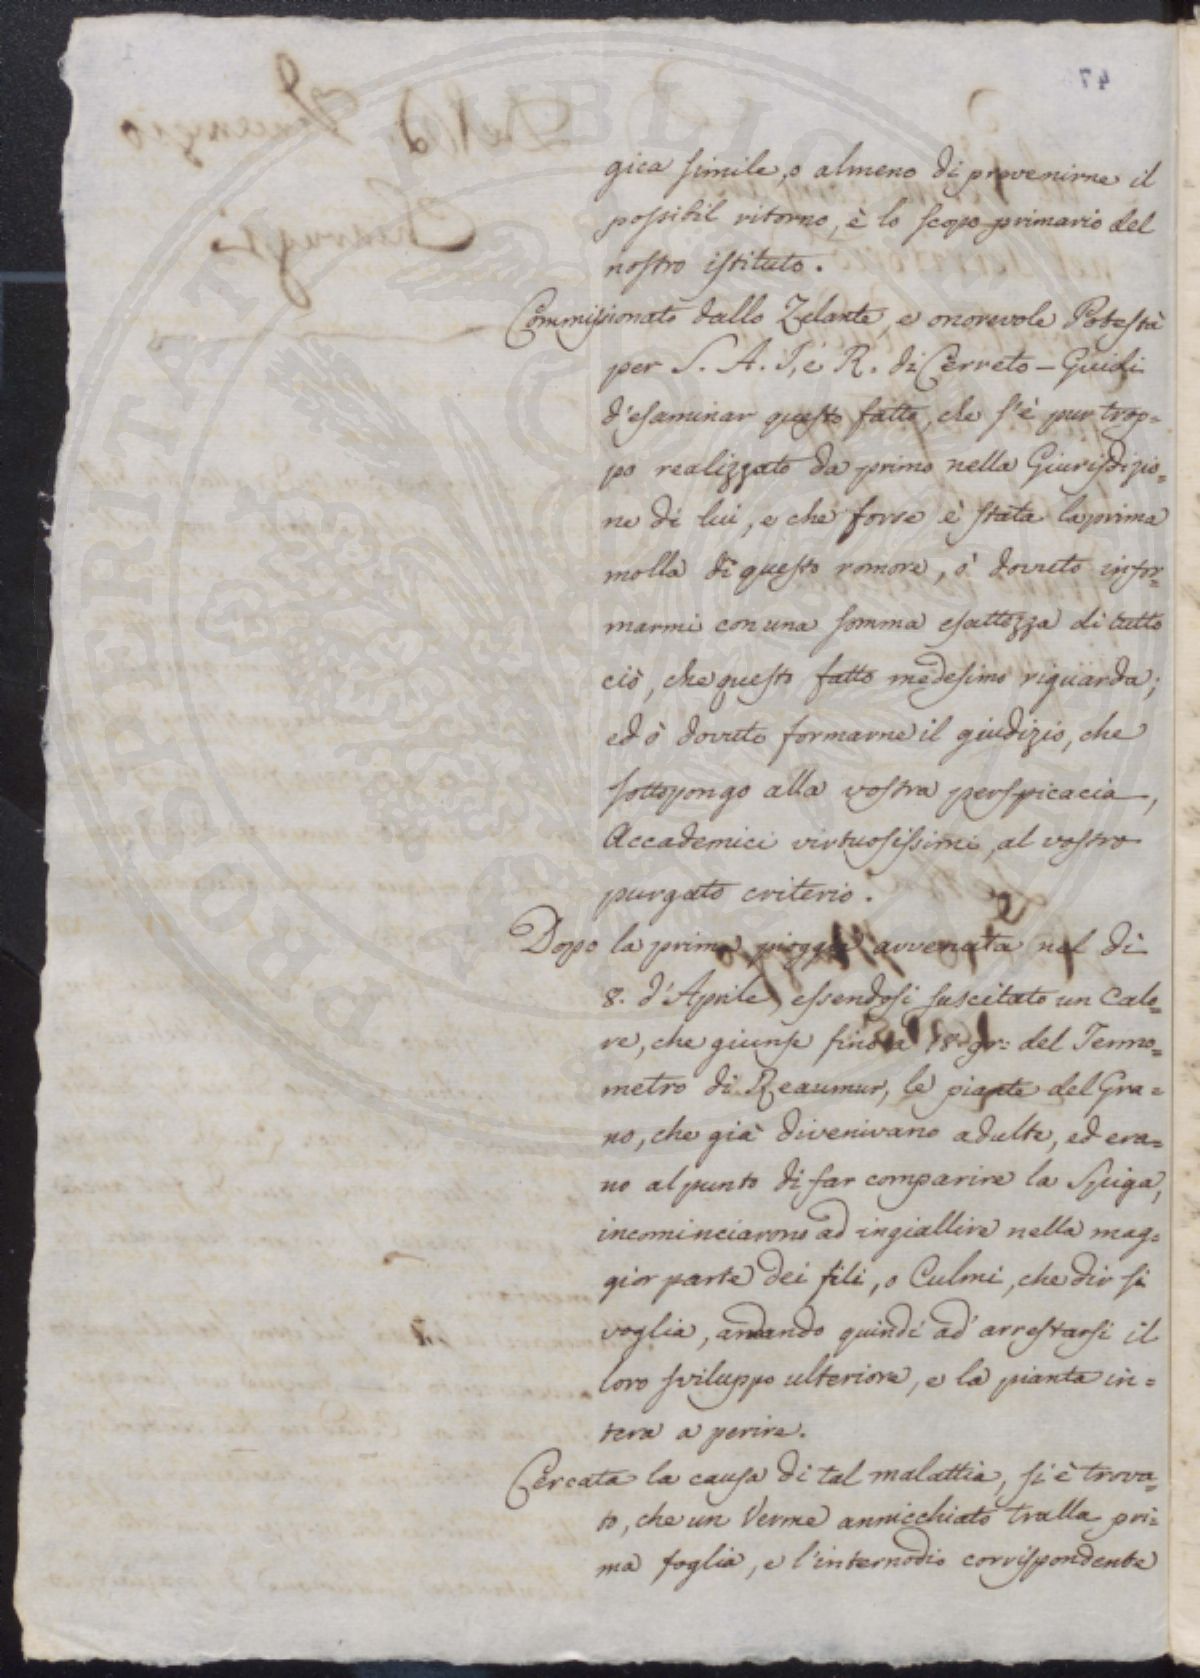 gica simile, o almeno di prevenirne il
possibil ritorno, è lo scopo primario del
nostro istituto.
Commissionato dallo Zelante, e onorevole Potestà
per S. A. I, e R. di Cerreto - Guidi
d'esaminar questo fatto, che s'è pur trop=
po realizzato da primo nella Giurisdizio=
ne di lui, e che forse è stata la prima
molla di questo romore, ò dovuto infor=
marmi con una somma esattezza di tutto
ciò, che questo fatto medesimo riguarda;
ed ò dovuto formarne il giudizio, che
sottopongo alla vostra perspicacia,
Accademici virtuosissimi, al vostro
purgato criterio.
Dopo la prima pioggia avvenuta nel dì
8. d'Aprile, essendosi suscitato un calo=
re, che giunse fino a 18. gr: del Termo=
metro di Reaumur, le piante del Gra=
no, che già divenivano adulte, ed era=
no al punto di far comparire la Spiga,
incominciarono ad ingiallire nella mag=
gior parte dei fili, o Culmi, che dir si
voglia, andando quindi ad arrestarsi il
loro sviluppo ulteriore, e la pianta in=
tera a perire.
Cercata la causa di tal malattia, si è trova=
to, che un Verme annicchiato tralla pri=
ma foglia, e l'internodio corrispondente